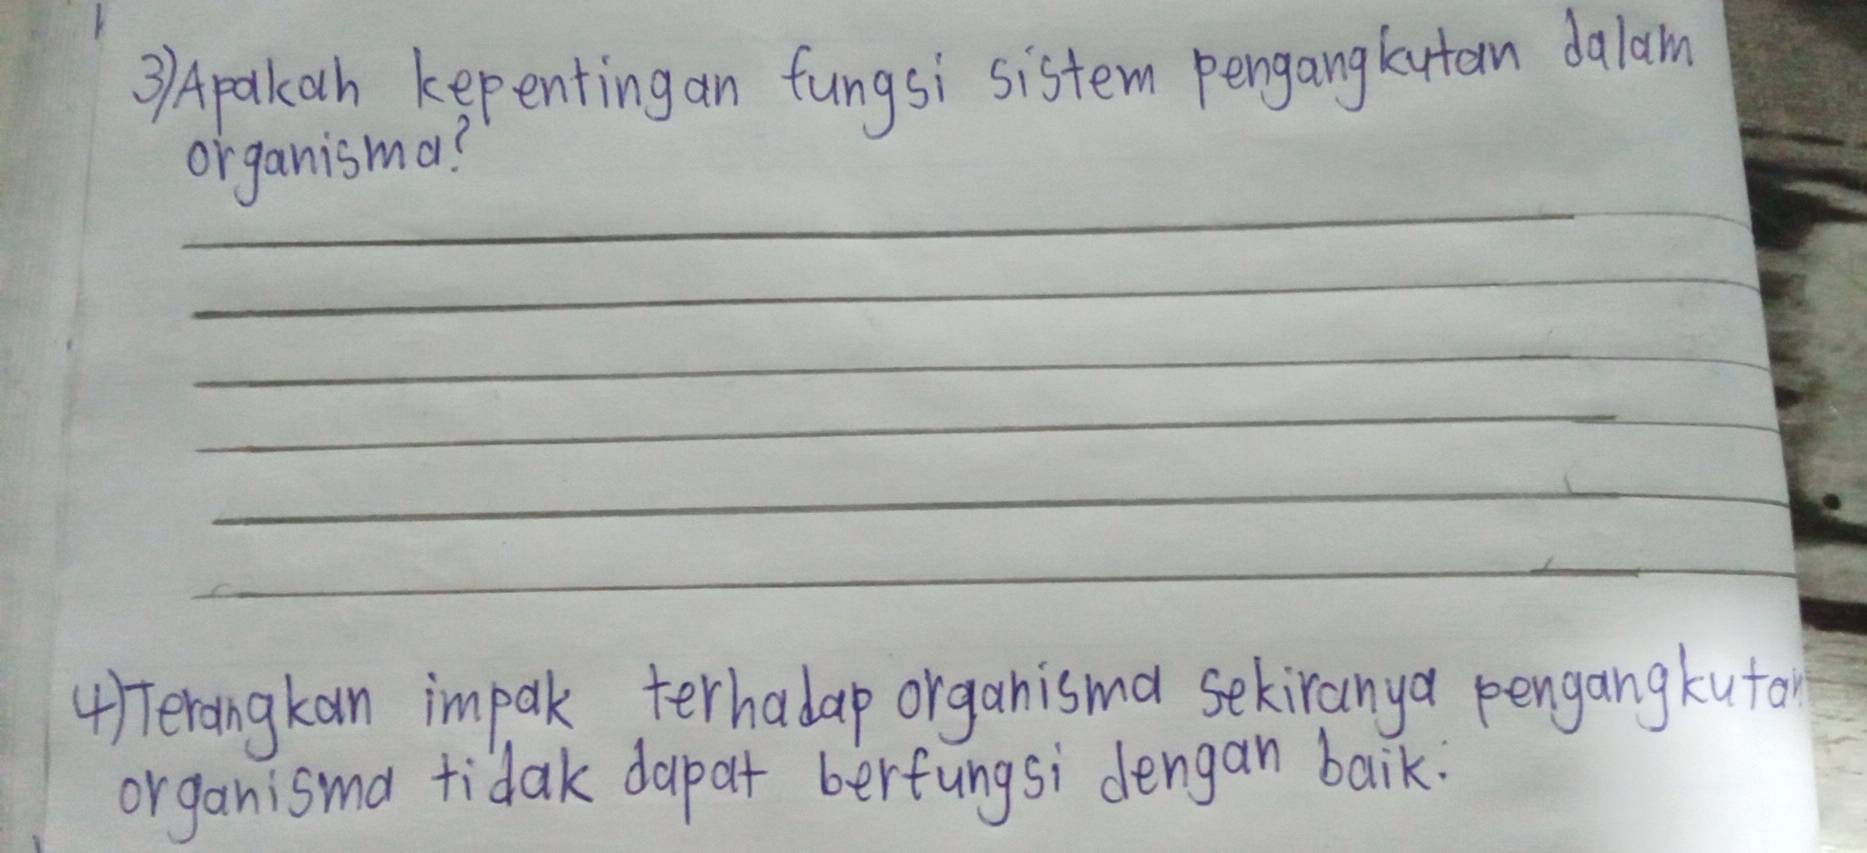 3) Apakah kepentingan fungsi sistem pengangkutan dalam
organisma?
4) Terangkan impak terhadap organisma sekiranya pengangkutan
organisma tidak dapat berfungsi dengan baik.